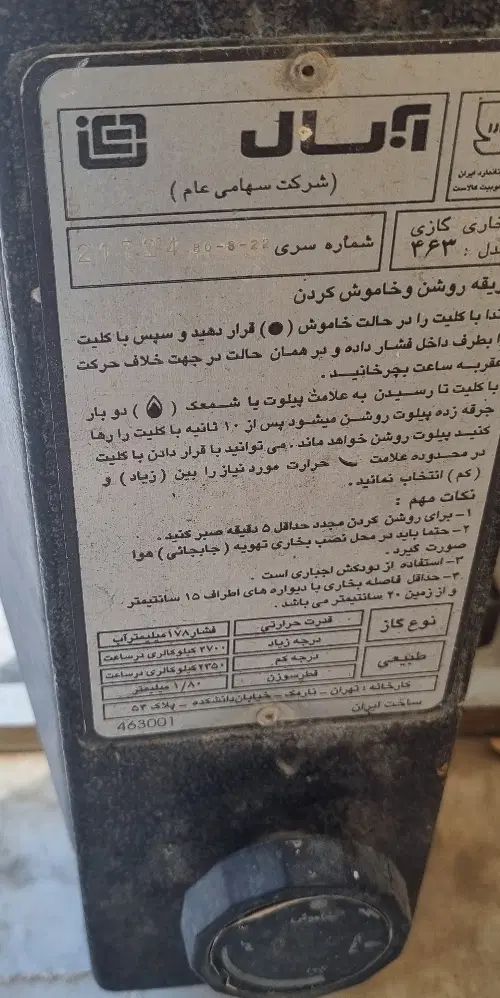 آبسال
(شرکت سهامی عام)
بخاری گازی
مدل : ۴۶۳
شماره سری 80-8-22
طریقه روشن و خاموش کردن
ابتدا با کلیت را در حالت خاموش (●) قرار دهید و سپس با کلیت
را بطرف داخل فشار داده و در همان حالت در جهت خلاف حرکت
عقربه ساعت بچرخانید .
با کلیت تا رسیدن به علامت پیلوت یا شمعک ( ) دو بار
جرقه زده پیلوت روشن میشود پس از ۱۰ ثانیه با کلیت را رها
کنید پیلوت روشن خواهد ماند . می توانید با قرار دادن با کلیت
در محدوده علامت حرارت مورد نیاز را بین ( زیاد ) و
( کم ) انتخاب نمائید .
نکات مهم :
۱- برای روشن کردن مجدد حداقل ۵ دقیقه صبر کنید .
۲- حتما باید در محل نصب بخاری تهویه ( جابجائی ) هوا
صورت گیرد .
۳- استفاده از دودکش اجباری است .
۴- حداقل فاصله بخاری با دیواره های اطراف ۱۵ سانتیمتر
و از زمین ۲۰ سانتیمتر می باشد .
نوع گاز قدرت حرارتی فشار ۱۷۸ میلیمتر آب
درجه زیاد ۲۷۰۰ کیلوکالری درساعت
طبیعی درجه کم ۲۳۵۰ کیلوکالری درساعت
قطر سوزن ۱/۸۰ میلیمتر
کارخانه : تهران - نارمک - خیابان دانشکده - پلاک ۵۳
ساخت ایران
463001
خاموش